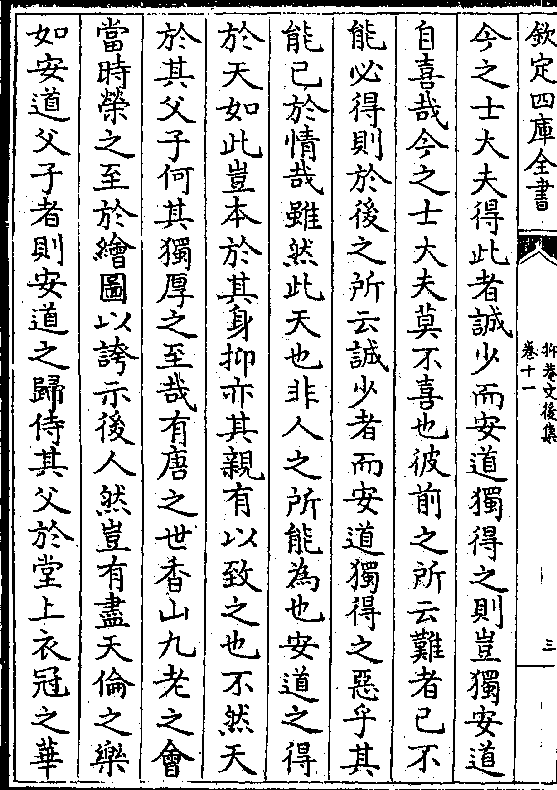 欽定四庫全書
抑菴文後集
卷十一
三
今之士大夫得此者誠少而安道獨得之則豈獨安道
自喜哉今之士大夫莫不喜也彼前之所云難者已不
能必得則於後之所云誠少者而安道獨得之惡乎其
能已於情哉雖然此天也非人之所能為也安道之得
於天如此豈本於其身抑亦其親有以致之也不然天
於其父子何其獨厚之至哉有唐之世香山九老之會
當時榮之至於繪圖以誇示後人然豈有盡天倫之樂
如安道父子者則安道之歸侍其父於堂上衣冠之華